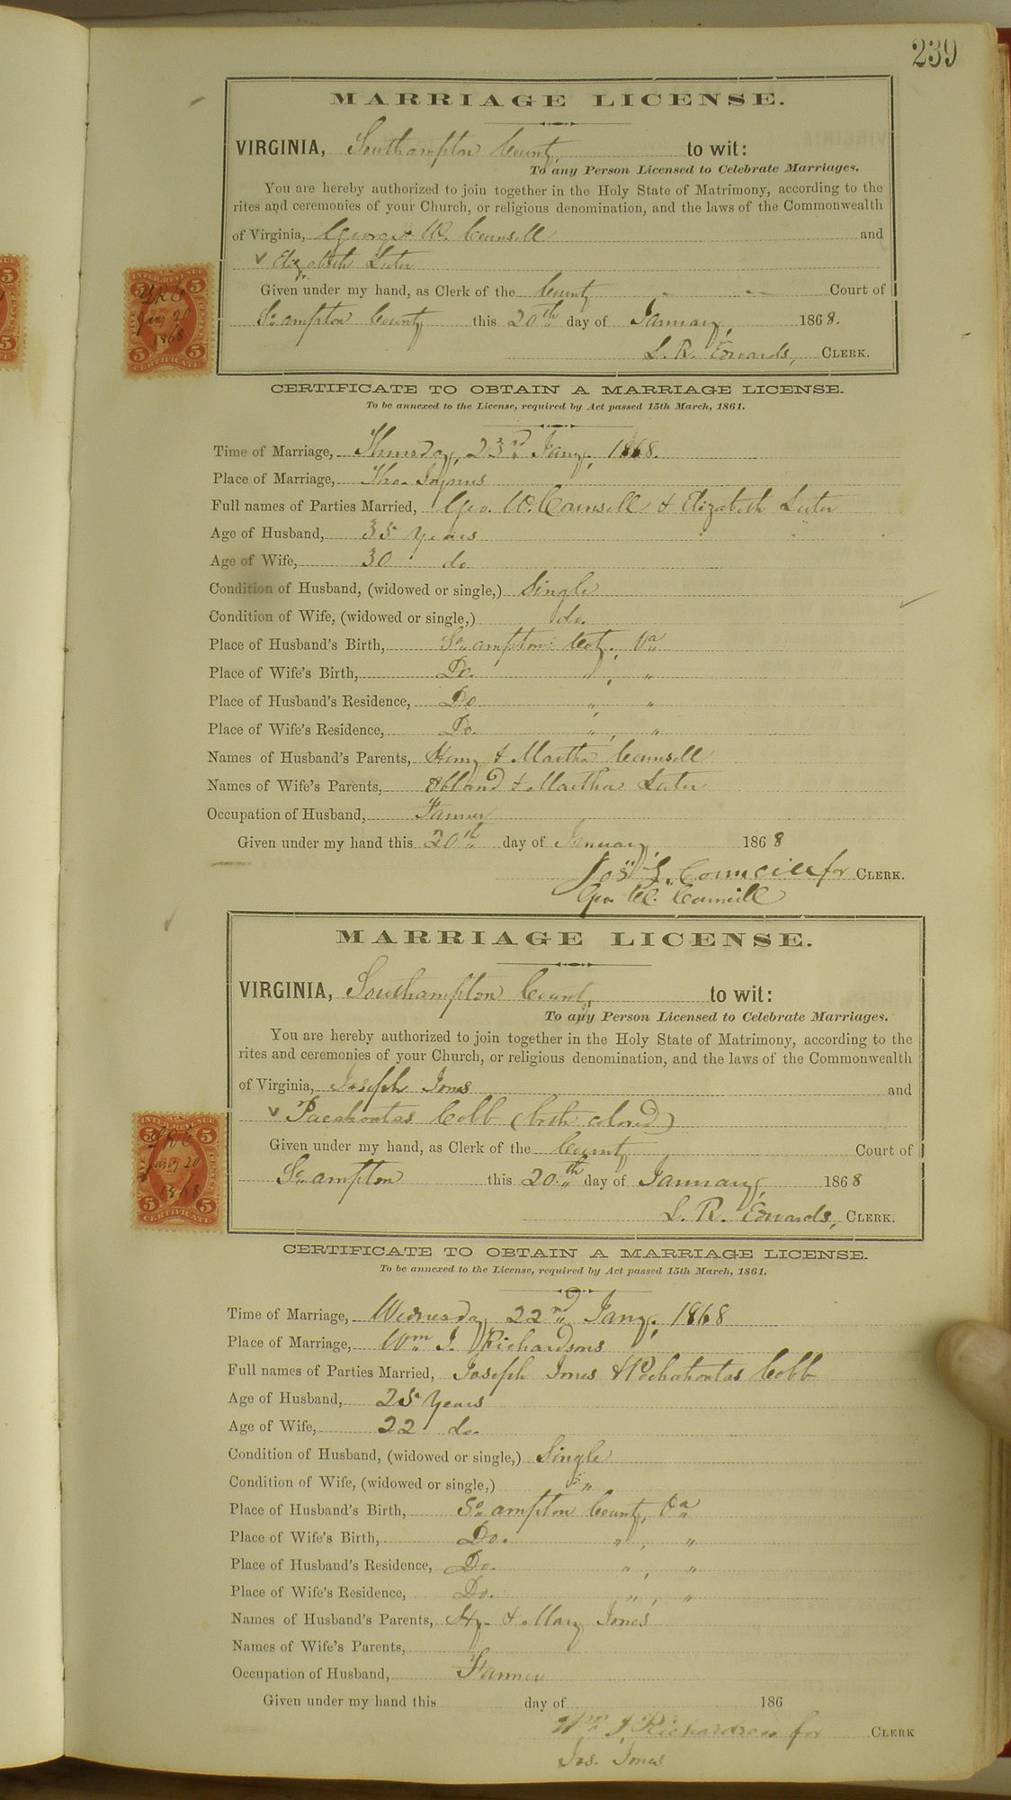 239
MARRIAGE LICENSE.
VIRGINIA, Southampton County, to wit:
To any Person Licensed to Celebrate Marriages.
You are hereby authorized to join together in the Holy State of Matrimony, according to the
rites and ceremonies of your Church, or religious denomination, and the laws of the Commonwealth
of Virginia, George W. Counsell and
v Elizabeth Luter
Given under my hand, as Clerk of the County Court of
So.ampton County this 20th day of January, 1868.
L. R. Edwards, CLERK.
INTER. REVENUE
5 5
L R E
Jany 20
1868
5 5
CERTIFICATE
CERTIFICATE TO OBTAIN A MARRIAGE LICENSE.
To be annexed to the License, required by Act passed 15th March, 1861.
Time of Marriage, Thursday, 23rd Jany, 1868.
Place of Marriage, Tho. Joyners
Full names of Parties Married, Geo. W. Counsell & Elizabeth Luter
Age of Husband, 35 Years
Age of Wife, 30 do
Condition of Husband, (widowed or single,) Single
Condition of Wife, (widowed or single,) do.
Place of Husband's Birth, So.ampton Coty. Va
Place of Wife's Birth, Do. " , "
Place of Husband's Residence, Do " , "
Place of Wife's Residence, Do. " , "
Names of Husband's Parents, Henry & Martha Counsell
Names of Wife's Parents, & Martha Luter
Occupation of Husband, Farmer
Given under my hand this 20th day of January, 1868
Jos. Councill for CLERK.
Geo. W. Councill
MARRIAGE LICENSE.
VIRGINIA, Southampton County, to wit:
To any Person Licensed to Celebrate Marriages.
You are hereby authorized to join together in the Holy State of Matrimony, according to the
rites and ceremonies of your Church, or religious denomination, and the laws of the Commonwealth
of Virginia, Joseph Jones and
v Pocahontas Cobb (both colored)
Given under my hand, as Clerk of the County Court of
So.ampton this 20th day of January, 1868
L. R. Edwards, CLERK.
INTER. REVENUE
5 5
L R E
Jany 20
1868
5 5
CERTIFICATE
CERTIFICATE TO OBTAIN A MARRIAGE LICENSE.
To be annexed to the License, required by Act passed 15th March, 1861.
Time of Marriage, Wednesday, 22nd Jany, 1868
Place of Marriage, Wm J. Richardsons
Full names of Parties Married, Joseph Jones & Pochahontas Cobb
Age of Husband, 25 Years
Age of Wife, 22 do.
Condition of Husband, (widowed or single,) Single
Condition of Wife, (widowed or single,) "
Place of Husband's Birth, So.ampton County, Va
Place of Wife's Birth, Do. " , "
Place of Husband's Residence, Do. " , "
Place of Wife's Residence, Do. " , "
Names of Husband's Parents, Hy. & Mary Jones
Names of Wife's Parents,
Occupation of Husband, Farmer
Given under my hand this day of 186
Wm J. Richardson for CLERK
Jos. Jones